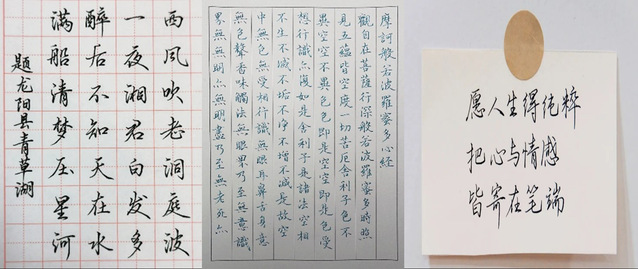 西风吹老洞庭波
一夜湘君白发多
醉后不知天在水
满船清梦压星河
题龙阳县青草湖
摩訶般若波羅蜜多心經
觀自在菩薩行深般若波羅蜜多時照
見五蘊皆空度一切苦厄舍利子色不
異空空不異色色即是空空即是色受
想行識亦復如是舍利子是諸法空相
不生不滅不垢不淨不增不減是故空
中無色無受想行識無眼耳鼻舌身意
無色聲香味觸法無眼界乃至無意識
界無無明亦無無明盡乃至無老死亦
愿人生得纯粹
把心与情感
皆寄在笔端